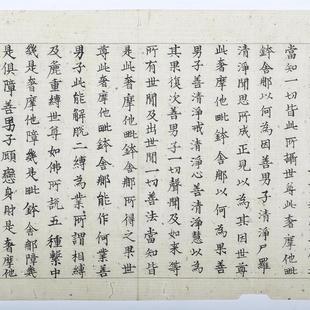 當知一切皆此所攝世尊此奢摩他毗
鉢舍那以何為因善男子清淨尸羅
清淨聞思所成正見以為其因世尊
此奢摩他毗鉢舍那以何為果善
男子善清淨戒清淨心善清淨慧以為
其果復次善男子一切聲聞及如來等
所有世間及出世間一切善法當知皆
是此奢摩他毗鉢舍那所得之果世
尊此奢摩他毗鉢舍那能作何業善
男子此能解脫二縛為業所謂相縛
及麁重縛世尊如佛所說五種繫中
幾是奢摩他障幾是毗鉢舍那障幾
是俱障善男子顧戀身財是奢摩他